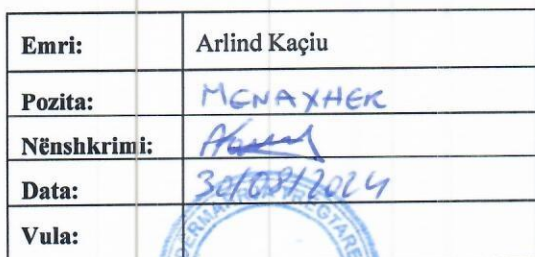 Emri: Arlind Kaçiu
Pozita: MENAXHER
Nënshkrimi:
Data: 30/08/2024
Vula: